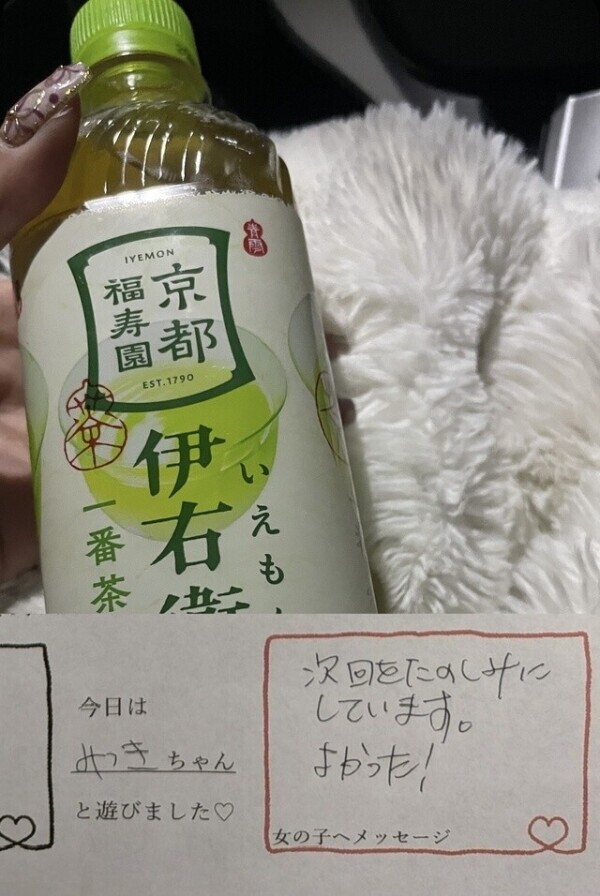 IYEMON
京都
福寿園
EST.1790
伊右衛
いえも
一番茶
今日は
みつきちゃん
と遊びました♡
次回をたのしみに
しています。
よかった!
女の子へメッセージ